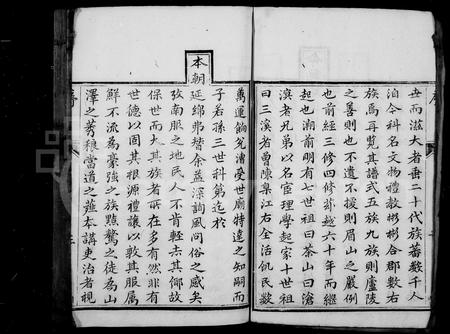 毋而滋大者垂二十代族蕃數千人
洎今科名文物禮教彬彬合郡數右
族焉再覽其譜式五族九族則廬陵
之善則也不遺不援則眉山之嚴例
也前經三修四修莭越六十年而繼
起也溯前明有七世祖曰茶山曰滄
溟者兄弟以名宦理學起家十世祖
曰三溪者曹陳臬江右全活飢民數
萬運餉充漕受世廟特達之知嗣而
子若孫三世科第迄於
本朝
延綿弗替余益深詢風問俗之感矣
攷南服之地民人不肯輕去其鄉故
保世而大其族者所在多有然非有
世德以固其根源禮讓以敦其服屬
鮮不流為豪強之族黠驁之徒為山
澤之莠稂當道之蘊本講吏治者視
序
三